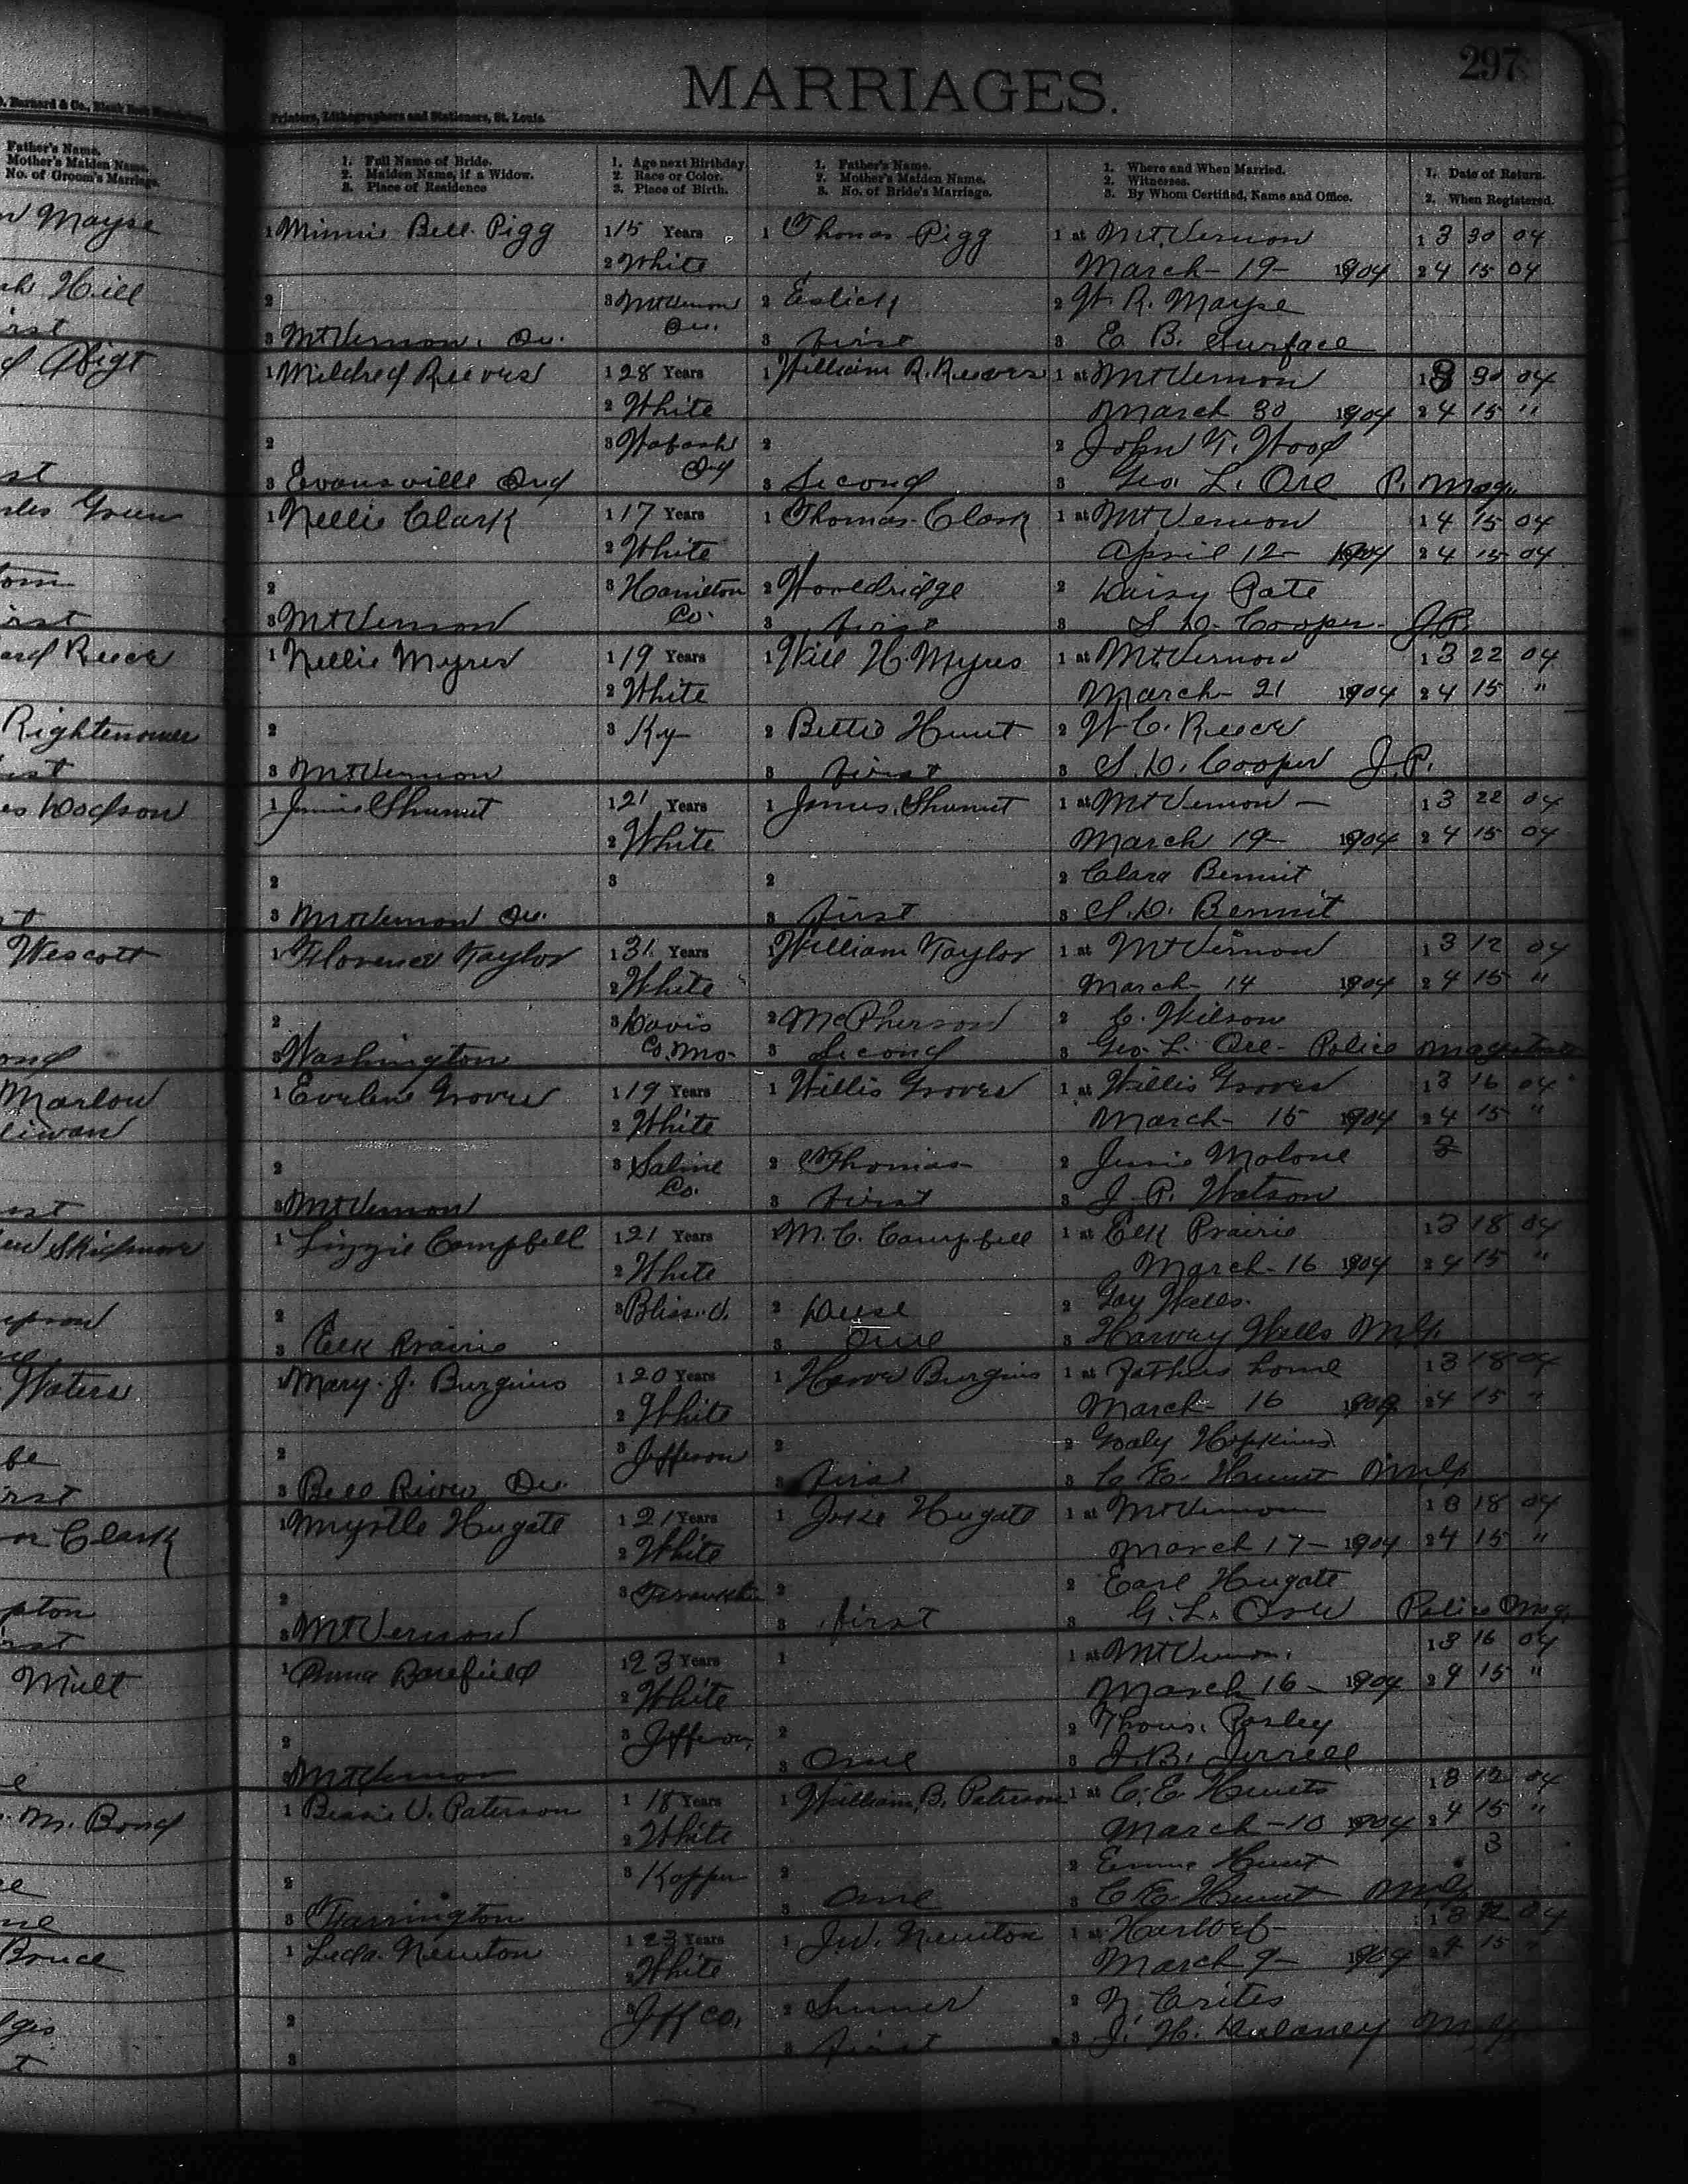 297
MARRIAGES.
D. Barnard & Co., Blank Book
Printers, Lithographers and Stationers, St. Louis.
Father's Name.
Mother's Maiden Name.
No. of Groom's Marriage.
1. Full Name of Bride.
2. Maiden Name, if a Widow.
3. Place of Residence
1. Age next Birthday
2. Race or Color.
3. Place of Birth.
1. Father's Name.
2. Mother's Maiden Name.
3. No. of Bride's Marriage.
1. Where and When Married.
2. Witnesses.
3. By Whom Certified, Name and Office.
1. Date of Return.
2. When Registered.
Mayse
1 Minnie Bell Pigg 1 15 Years 1 Thomas Pigg 1 at Mt Vernon 1 3 30 04
2 White March - 19 - 1904 2 4 15 04
Hill
2 3 Mt Vernon 2 Eslick 2 W. R. Mayse
3 Mt Vernon 3 first 3 E. B. Surface
1 Mildred Reeves 1 28 Years 1 William R. Reeves 1 at Mt Vernon 1 3 30 04
2 White March 30 1904 2 4 15 "
2 3 Wabash 2 2 John T. Wood
Ind
3 Evansville Ind 3 Second 3 Geo. L. Ore P. Mag.
Green
1 Nellie Clark 1 17 Years 1 Thomas Clark 1 at Mt Vernon 1 4 15 04
2 White April 12 - 1904 2 4 15 04
2 3 Hamilton 2 Wooldridge 2 Daisy Pate
Co.
3 Mt Vernon 3 first 3 S. D. Cooper - J.P.
Reece
1 Nellie Myres 1 19 Years 1 Will H. Myres 1 at Mt Vernon 1 3 22 04
2 White March - 21 1904 2 4 15 "
Rightenower
2 3 Ky 2 Bettie Hunt 2 W. C. Reece
3 Mt Vernon 3 first 3 S. D. Cooper J.P.
Dodson
1 Shumut 1 21 Years 1 James Shumut 1 at Mt Vernon - 1 3 22 04
2 White March 19 - 1904 2 4 15 04
2 3 2 2 Clara Bennit
3 Mt Vernon 3 first 3 S. D. Bennit
Wescott
1 Florence Taylor 1 31 Years 1 William Taylor 1 at Mt Vernon 1 3 12 04
2 White March - 14 1904 2 4 15 "
2 3 Davis 2 McPherson 2 C. Wilson
Co. Mo.
3 Washington 3 Second 3 Geo. L. Ore - Police Magistrate
Marlow
1 Eveline Groves 1 19 Years 1 Willis Groves 1 at Willis Groves 1 3 16 04
2 White March - 15 1904 2 4 15 "
2 3 Saline 2 Thomas 2 Jessie Malone
Co.
3 Mt Vernon 3 first 3 J. P. Watson
Skidmore
1 Lizzie Campbell 1 21 Years 1 M. C. Campbell 1 at Elk Prairie 1 3 18 04
2 White March - 16 1904 2 4 15 "
2 3 2 2 Gay Wells.
3 Elk Prairie 3 One 3 Harvey Wells
Waters
1 Mary J. Burgins 1 20 Years 1 Burgins 1 at Fathers home 1 3 18 04
2 White March - 16 2 4 15 "
2 3 Jefferson 2 2 Hopkins
3 3 first 3 C. E. Hunt
Clark
1 Myrtle Hugate 1 21 Years 1 Jake Hugate 1 at Mt Vernon 1 3 18 04
2 White March 17 - 1904 2 4 15 "
2 3 2 2 Earl Hugate
3 Mt Vernon 3 first 3 G. L. Ore Police Mag.
Milt
1 Anna Barefield 1 23 Years 1 1 at Mt Vernon. 1 3 16 04
2 White March 16 - 1904 2 4 15 "
2 3 Jefferson 2 2 Thos. Pasley
3 Mt Vernon 3 One 3 J. B. Jerrell
M. Bond
1 Bessie V. Paterson 1 18 Years 1 William B. Paterson 1 at C. E. Hunts 1 3 12 04
2 White March - 10 1904 2 4 15 "
3
2 3 2 2 Emma Hunt
3 Farrington 3 One 3 C. E. Hunt
Bruce
1 Leda Newton 1 23 Years 1 J. W. Newton 1 at 1 3 04
2 White March 9 - 1904 2 4 15 "
2 3 Jeff Co. 2 Sumer 2 Crites
3 3 first 3 J. H. Dulaney